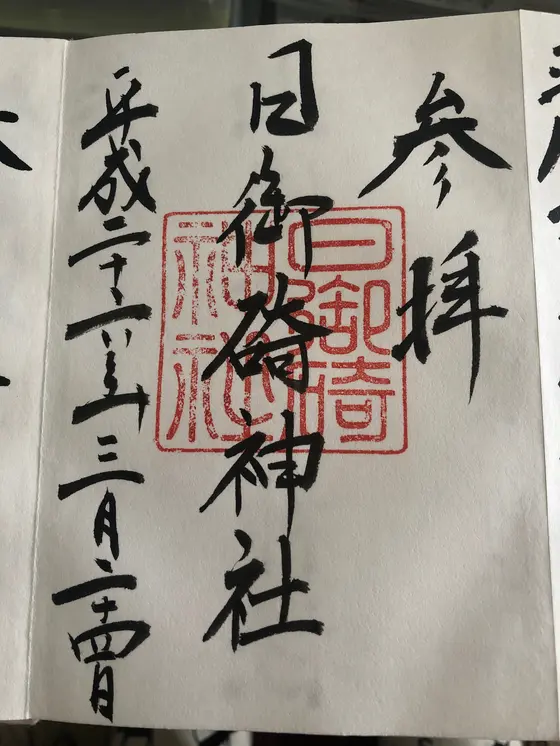 参拝
日御碕神社
平成二十六年三月二十四日
日御碕
神社